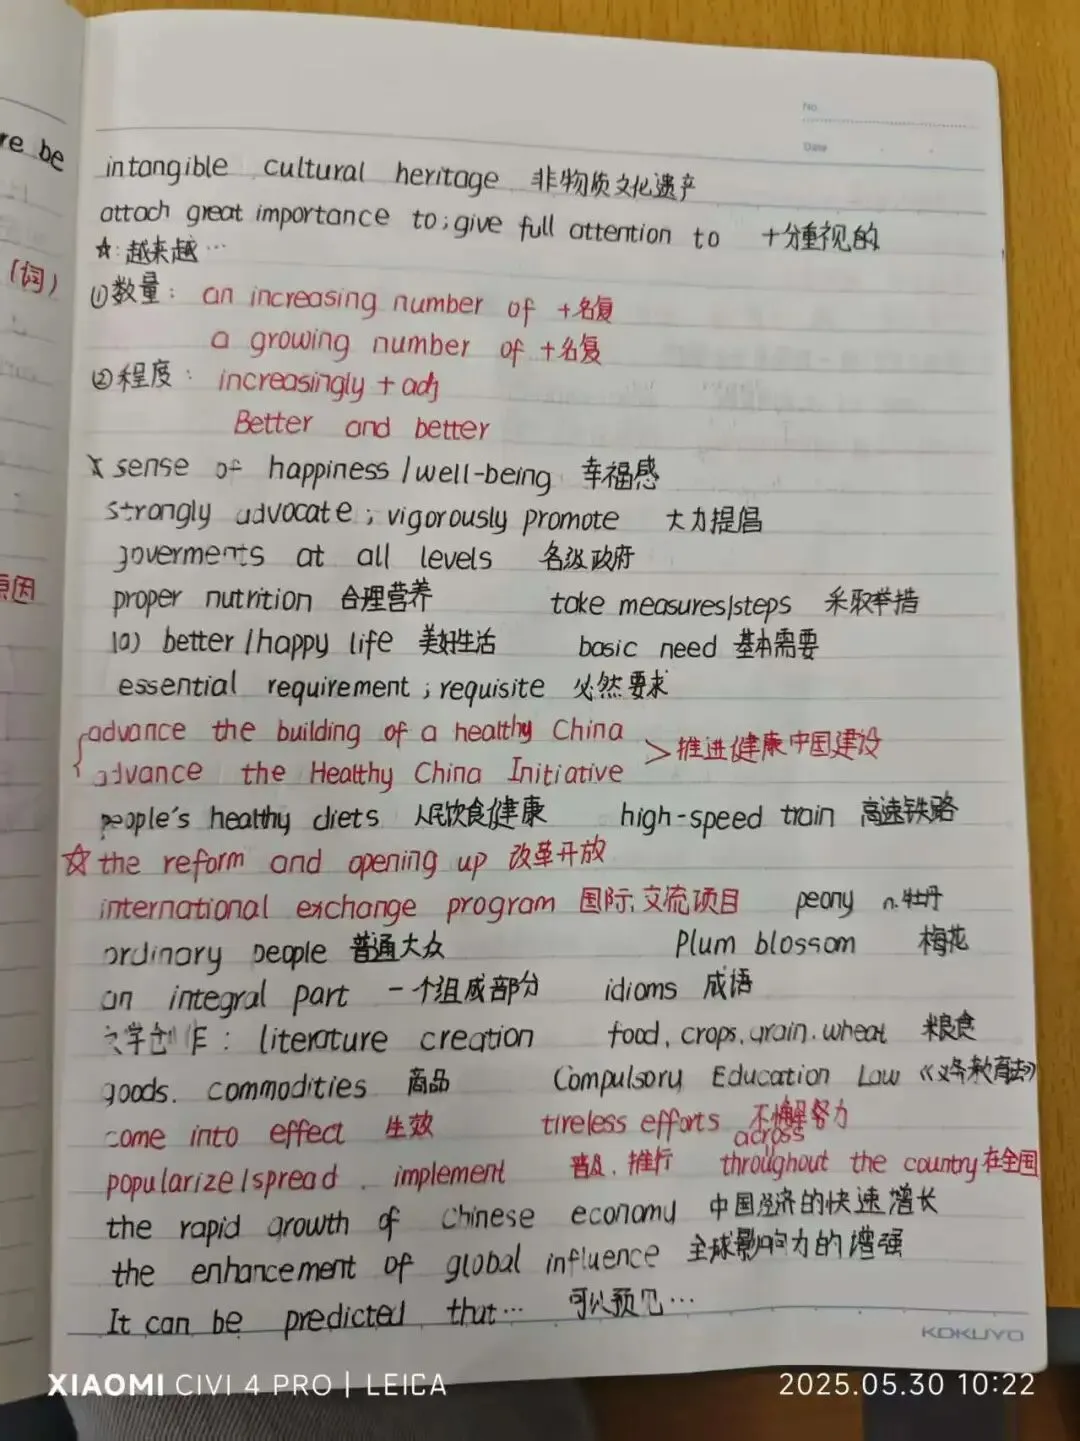 No
Date
re be
intangible cultural heritage 非物质文化遗产
attach great importance to; give full attention to 十分重视的
(词)
☆:越来越…
①数量: an increasing number of +名复
a growing number of +名复
②程度: increasingly + adj
Better and better
sense of happiness / well-being 幸福感
strongly advocate; vigorously promote 大力提倡
goverments at all levels 各级政府
原因
proper nutrition 合理营养 take measures/steps 采取举措
(a) better / happy life 美好生活 basic need 基本需要
essential requirement; requisite 必然要求
advance the building of a healthy China
advance the Healthy China Initiative > 推进健康中国建设
people's healthy diets 人民饮食健康 high-speed train 高速铁路
☆ the reform and opening up 改革开放
international exchange program 国际交流项目 peony n.牡丹
ordinary people 普通大众 Plum blossom 梅花
an integral part 一个组成部分 idioms 成语
文学创作: literature creation food, crops, grain. wheat 粮食
goods. commodities 商品 Compulsory Education Law 《义务教育法》
come into effect 生效 tireless efforts 不懈努力
across
popularize/spread. implement 普及、推行 throughout the country 在全国
the rapid growth of Chinese economy 中国经济的快速增长
the enhancement of global influence 全球影响力的增强
It can be predicted that… 可以预见…
KOKUYO
XIAOMI CIVI 4 PRO | LEICA
2025.05.30 10:22